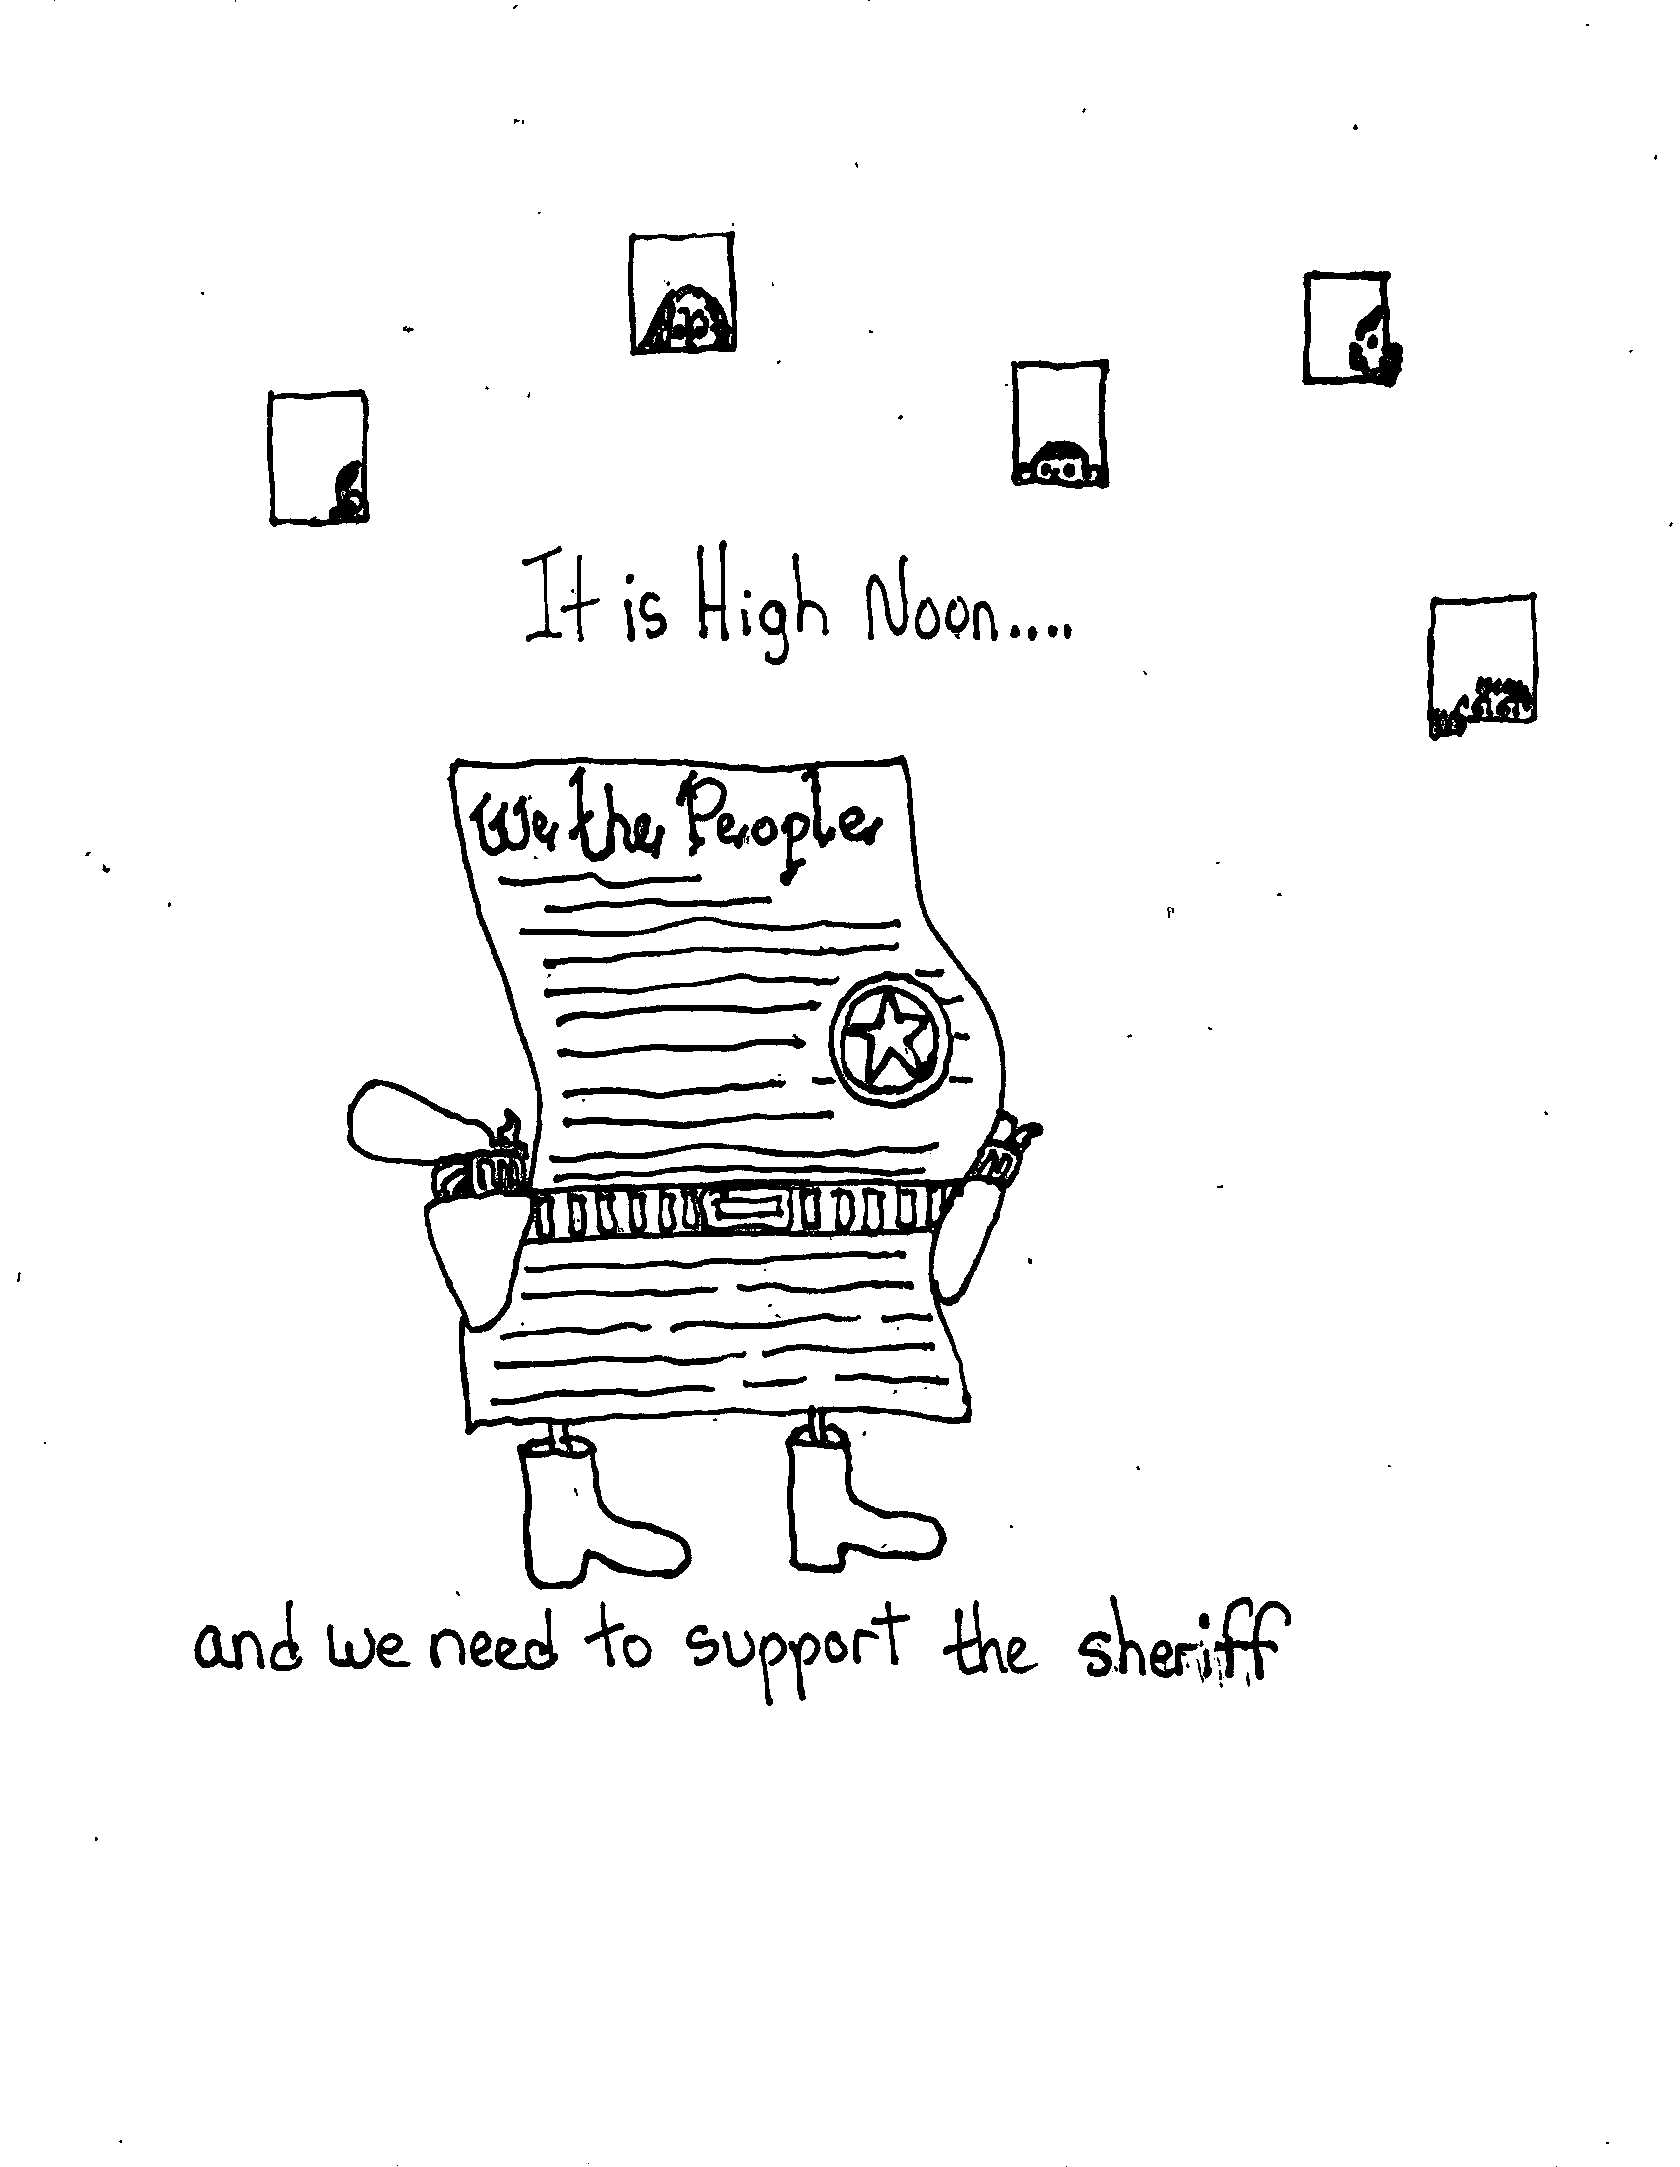 It is High Noon....
We the People
and we need to support the sheriff